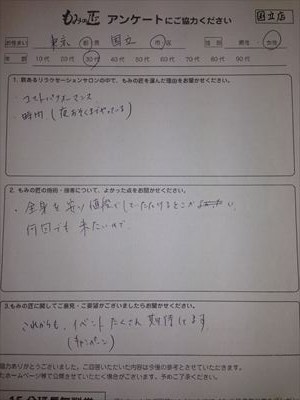 もみの匠 アンケートにご協力ください 国立店
お住まい 東京 都 府 国立 市 区 性別 男性 女性
年齢 10代 20代 30代 40代 50代 60代 70代 80代 90代
1. 数あるリラクゼーションサロンの中で、もみの匠を選んだ理由をお聞かせください。
・コストパフォーマンス
・時間(夜おそくまでやっている)
2. もみの匠の技術・接客について、よかった点をお聞かせください。
・全身を安い値段でしていただけるところがよい。
何回でも来たいので。
3.もみの匠に関してご意見・ご要望がございましたらお聞かせください。
これからも、イベントたくさん期待してます
(キャンペーン)
協力ありがとうございました。ご回答いただいた内容は今後の参考とさせていただきます。
たホームページ等で公開させていただく場合がございます。予めご了承ください。